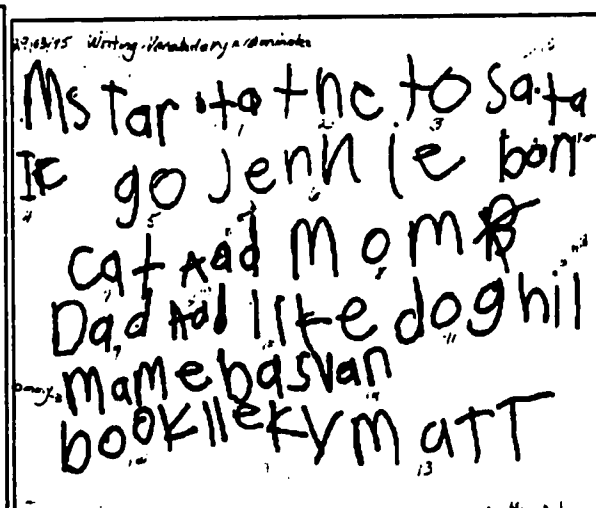 29/03/95 Writing Vocabulary
Ms Tar ta the to Sa ta
go Jennie bon
cat Add Mom
Dad Add like dog hil
mame basvan
book llekymatt